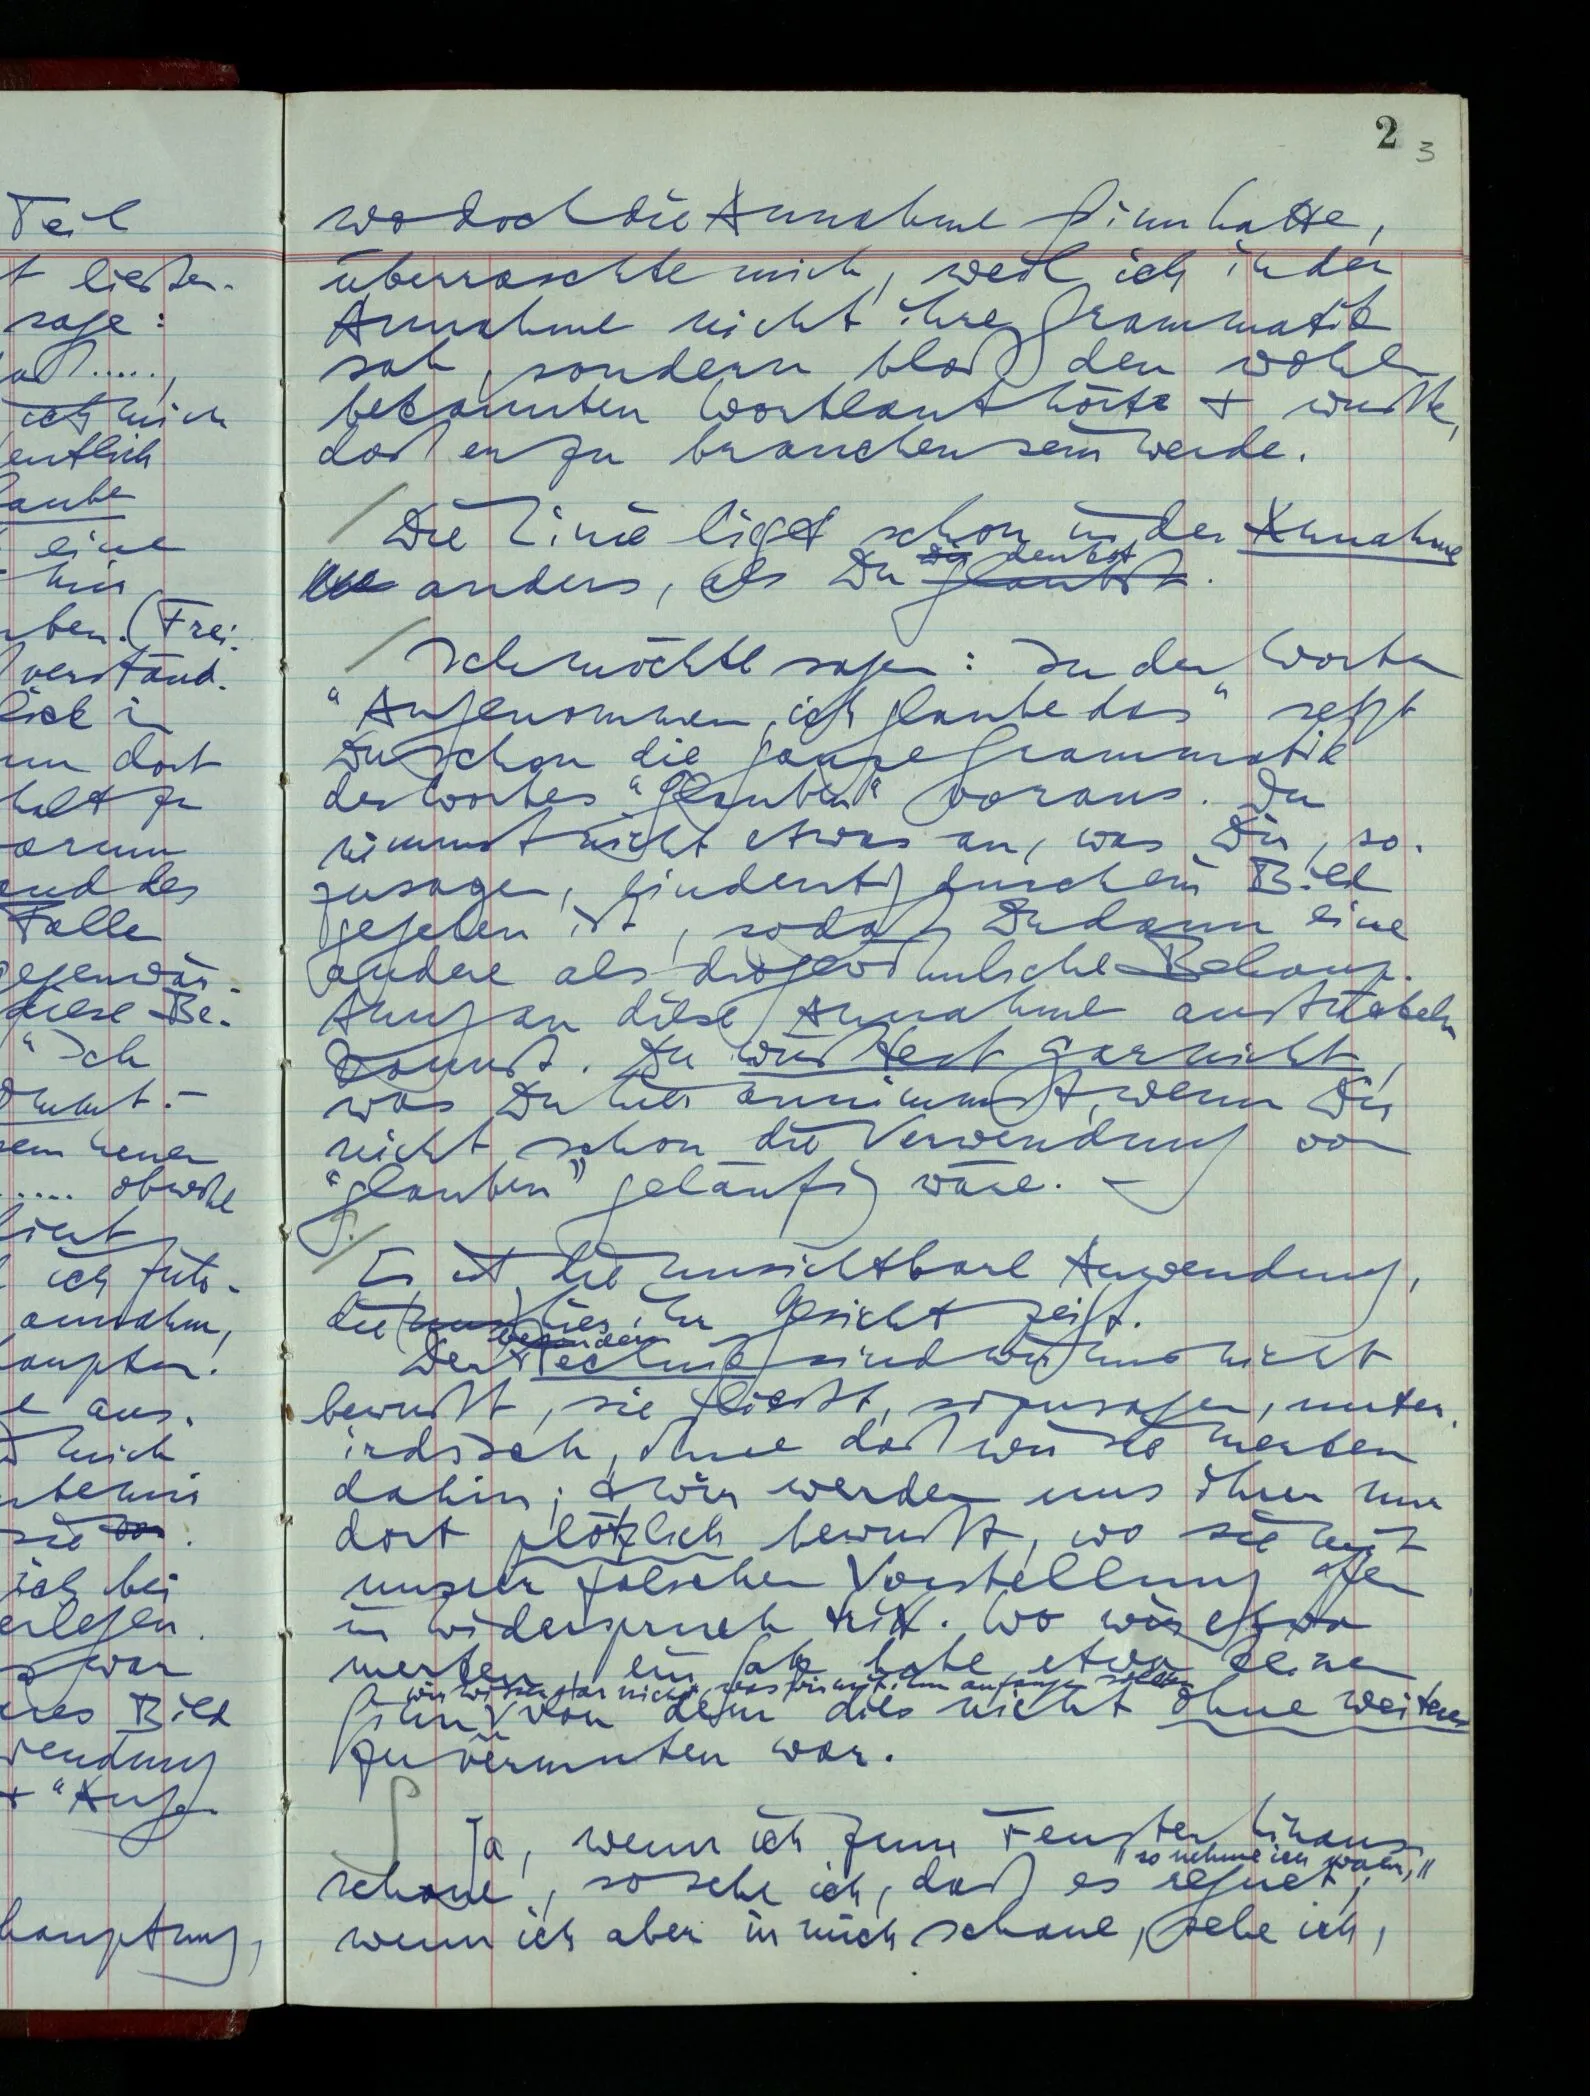 2 3
Teil
t ließen.
sage:
aß .....,
ich mich
entlich
laube
eine
hin
ben. (Frei-
verständ-
lick in
nn dort
halt zu
arum
and des
Falle
gegenwär-
diese Be-
" Ich
ommt. –
sem neuen
..... obwohl
ich
annahm,
haupten!
e aus.
mich
sie
ich bei
erlegen.
war
eres Bild
wendung
+ "Ange-
hauptung,
wo doch die Annahme Sinn hatte,
überraschte mich, weil ich in der
Annahme nicht ihre Grammatik
sah, sondern bloß den wohl
bekannten Wortlaut hörte + wußte,
daß er zu brauchen sein werde.
Die Linie liegt schon in der Annahme
anders, als Du denkst glaubst.
Ich möchte sagen: In den Worten
"Angenommen, ich glaube das" setzt
Du schon die ganze Grammatik
des Wortes "glauben" voraus. Du
nimmst nicht etwas an, was Dir, so-
zusagen, eindeutig durch ein Bild
gegeben ist, sodaß Du dann eine
andere als die gewöhnliche Behaup-
tung an diese Annahme anstückeln
kannst. Du wüßtest gar nicht,
was Du hier annimmst, wenn Dir
nicht schon die Verwendung von
"glauben" geläufig wäre. –
Es ist die unsichtbare Anwendung,
die uns hier ihr Gesicht zeigt.
Der Technik sind wir uns nicht
bewußt, sie fließt, sozusagen, unter-
irdisch, ohne daß wir es merken
dahin; + wir werden uns ihrer nur
dort plötzlich bewußt, wo sie mit
unsrer falschen Vorstellung offen
in Widerspruch tritt. Wo wir etwa
merken, ein Satz habe etwa keinen
wir wissen gar nicht, was wir mit ihm anfangen sollen
Sinn, von dem dies nicht ohne weiteres
zu vermuten war.
Ja, wenn ich zum Fenster hinaus
"so nehme ich wahr,"
schaue, so sehe ich, daß es regnet;
wenn ich aber in mich schaue, sehe ich,